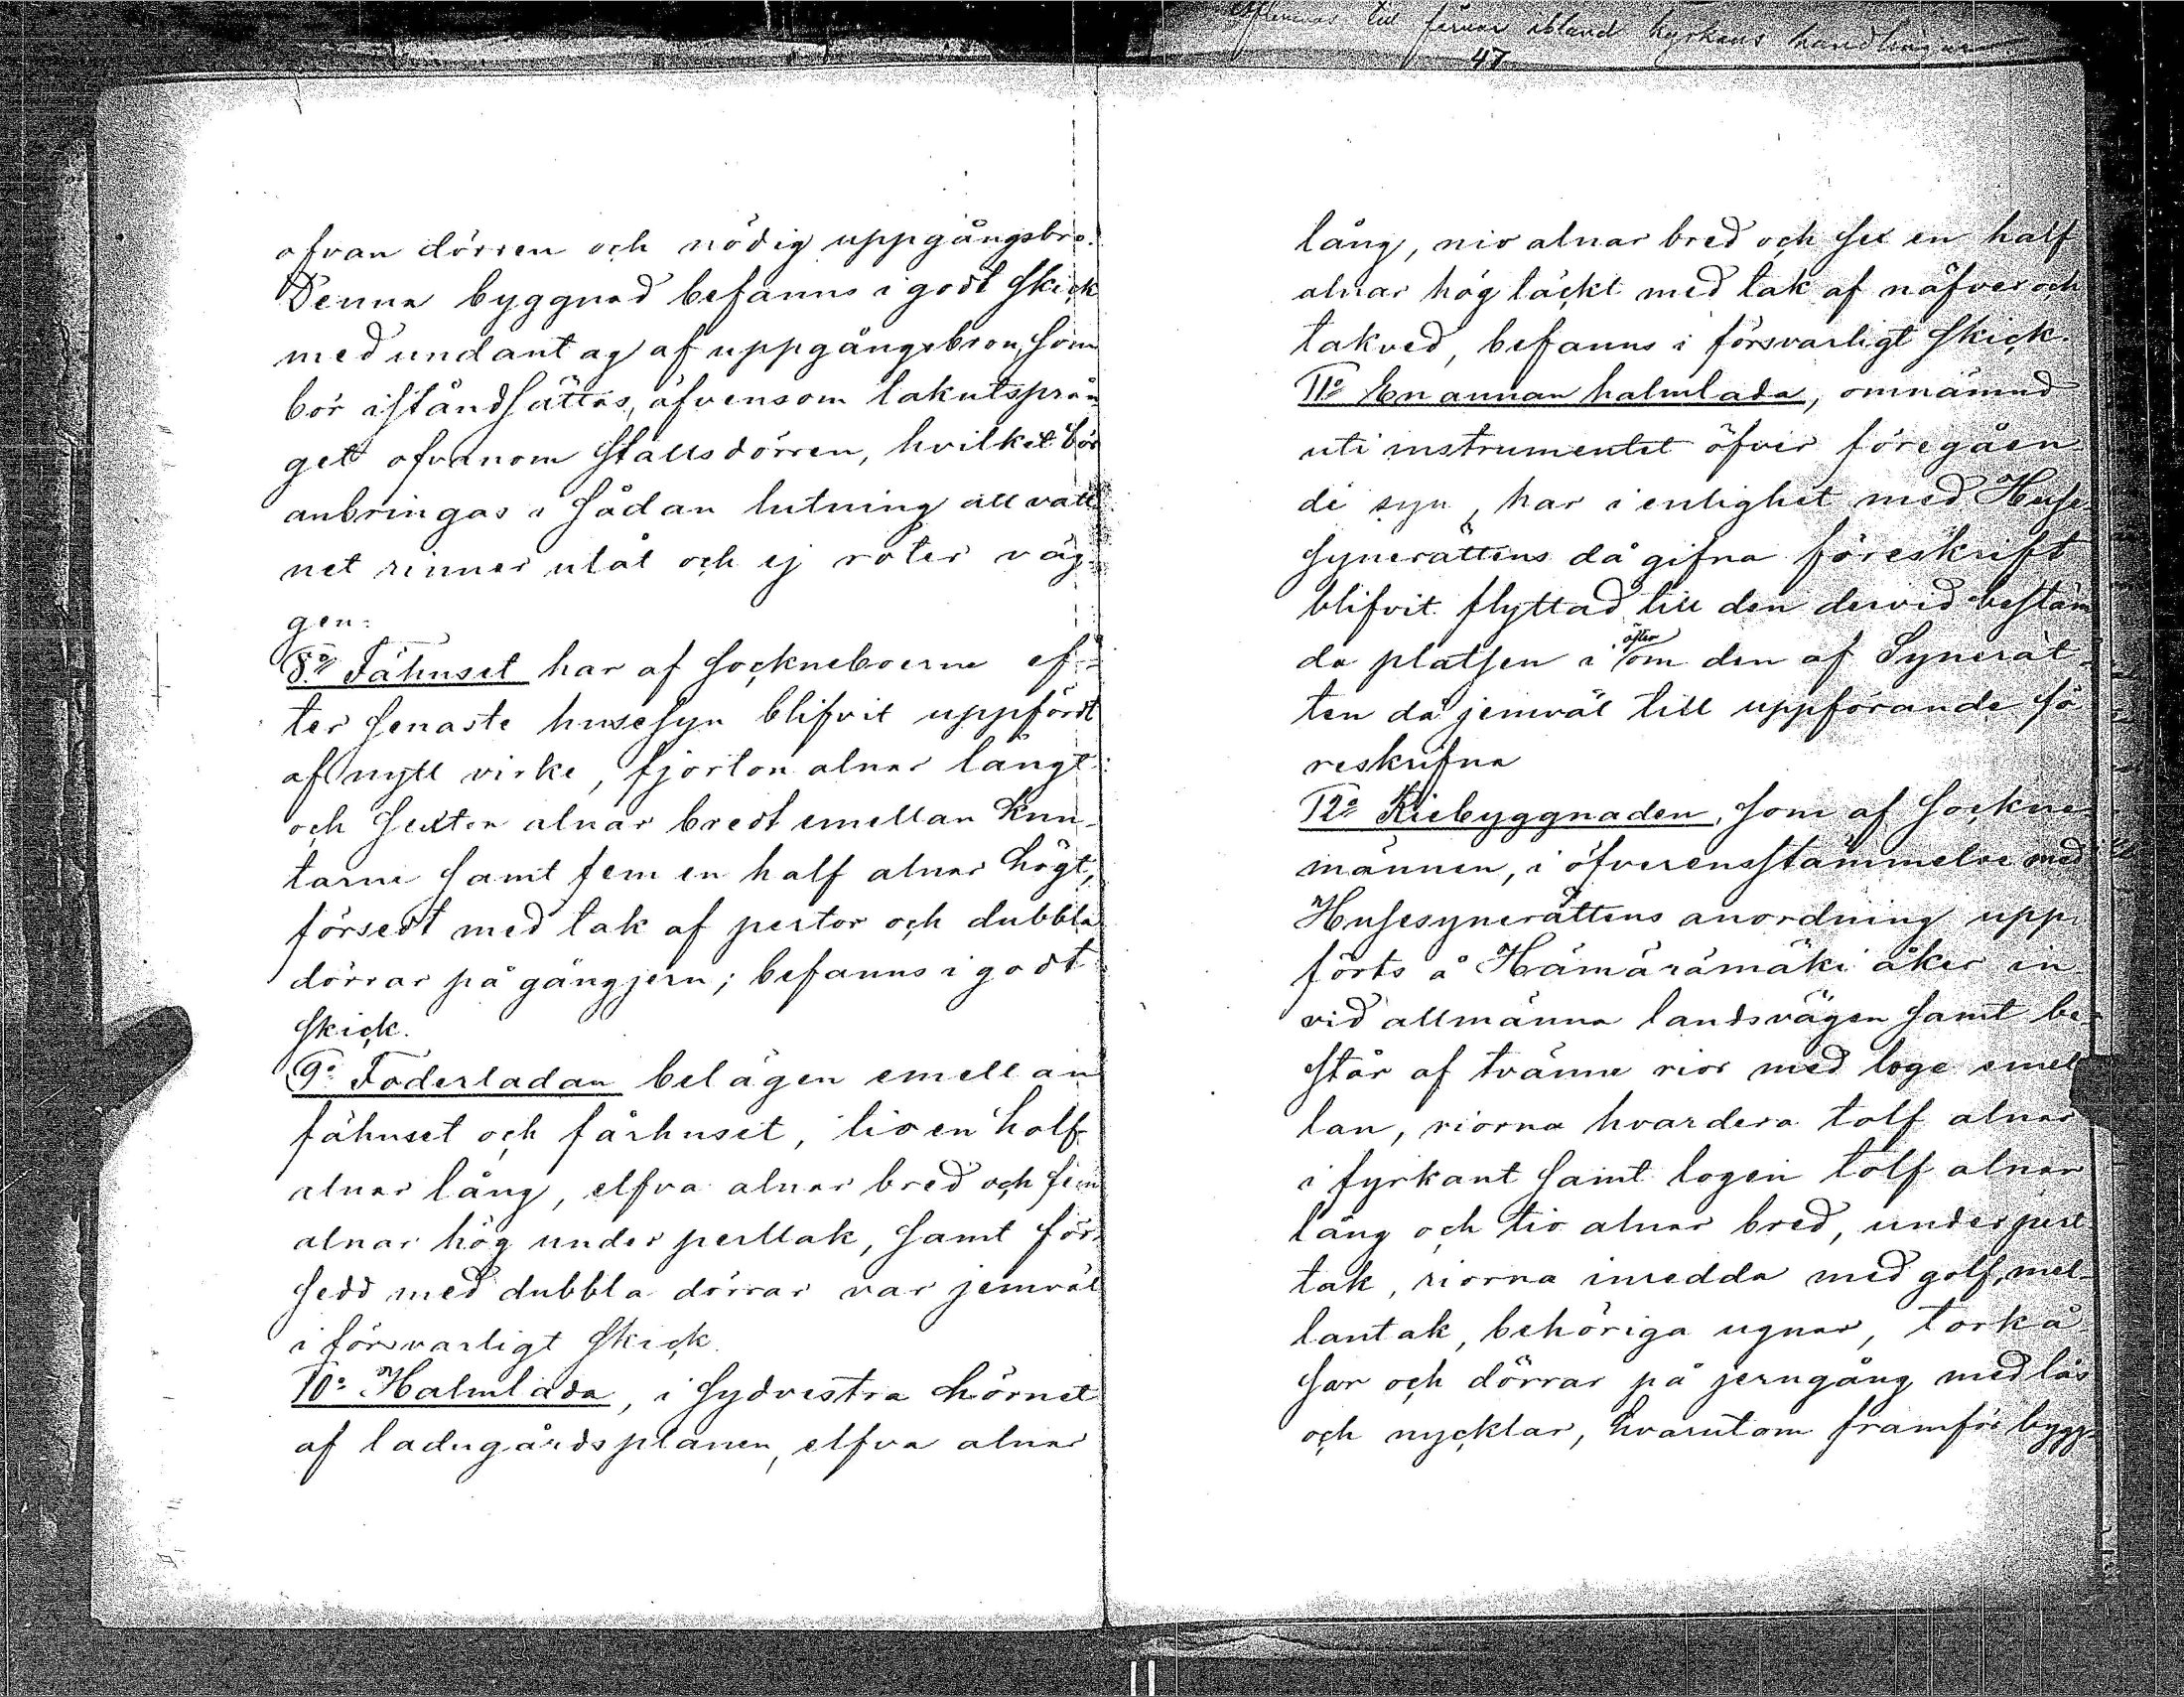 ofvan dörren och nödig uppgångsbro.
Denna byggnad befanns i godt skick
med undantag af uppgångsbron, som
bör iståndsättas, äfvensom takutsprån-
get ofvanom stallsdörren, hvilket bör
anbringas i sådan lutning att vatt-
net rinner utåt och ej röter väg-
gen.
8:o Fähuset har af sockneboerne ef-
ter senaste husesyn blifvit uppfördt
af nytt virke, fjorton alnar långt
och sexton alnar bredt emellan knu-
tarne samt fem en half alnar högt,
försedt med tak af pertor och dubbla
dörrar på gångjern; befanns i godt
skick.
9:o Foderladan belägen emellan
fähuset och fårhuset, tio en half
alnar lång, elfva alnar bred och fem
alnar hög under perttak, samt för-
sedd med dubbla dörrar var jemväl
i försvarligt skick.
10:o Halmlada, i sydvestra hörnet
af ladugårdsplanen, elfva alnar
till kyrkans handlingar
47
lång, nio alnar bred och sex en half
alnar hög täckt med tak af näfver och
takved, befanns i försvarligt skick.
11:o En annan halmlada, omnämnd
uti instrumentet öfver föregåen-
de syn, har i enlighet med Huse-
synerättens då gifna föreskrift
blifvit flyttad till den dervid bestäm-
da platsen i öster om den af Synerät-
ten då jemväl till uppförande fö-
reskrifna
12:o Riebyggnaden, som af Sockne-
männen, i öfverensstämmelse med
Husesynerättens anordning upp-
förts å Hämärämäki åker in-
vid allmänna landsvägen samt be-
står af tvänne rior med loge emel-
lan, riorna hvardera tolf alnar
i fyrkant samt logen tolf alnar
lång och tio alnar bred, under pert-
tak, riorna inredda med golf, mel-
lantak, behöriga ugnar, torkå-
sar och dörrar på jerngång med lås
och nycklar, hvarutom framför bygg-